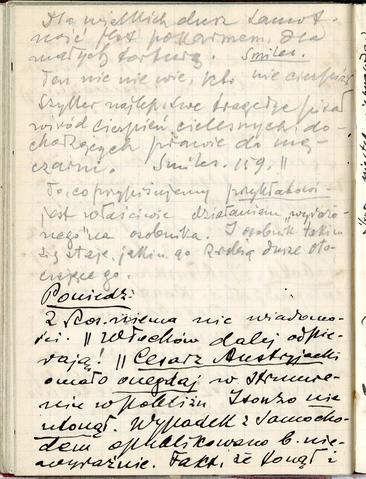 Dla wielkich dusz samot-
ność jest pokarmem, dla
małych torturą. Smiles.
Ten nic nie wie, kto nie cierpiał
Szyller najlepsze tragedye pisał
wśród cierpień cielesnych do-
chodzących prawie do mę-
czarni. Smiles. 119. ||
To, co przypisujemy przykładowi
jest właściwie działaniem „
nego” na osobnika. I osobnik takim
się staje, jakim go zrobią dusze oto-
czające go.
Poniedz:
Z Ros. nie wiadomo-
ści. || Włochów dalej odpie-
rają! || Cesarz Austryjacki
omało onegdaj w
nie w pobliżu Isonzo nie
utonął. Wypadek z samocho-
dem opublikowano b. nie-
wyraźnie. Fakt, że tonął i